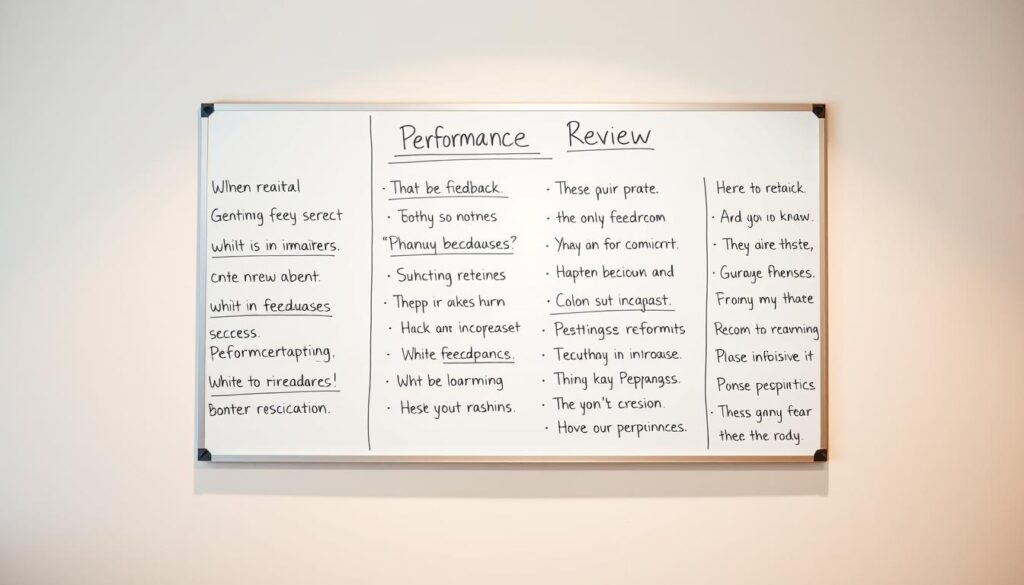 Performance Review
When reaital
Genting feey serect
whilt is in imairers.
cnte nrew abent.
whit in feeduases
seccess.
Peformcertaptiing.
White to rireadares!
Bonter rescication.
· That be fiedback.
· Tothy so notnes
"Phanuy becdauses?
· Suhcting reteines
· Thepp ir akes hirn
· Hack ant incopreaset
· White feedpancs.
· Wht be loarming
· Hese yout rashins.
· These puir prate.
· the only feedrcom
· Yhay an for comicrrt.
· Hapten becioun and
· Colon sut incapast.
· Pesttingse reformits
· Tecuthay in introuse.
· Thing kay Peppangss.
· The yon't cresion.
· Hove our perpiinnces.
Here to retaick.
· Ard you io knaw.
· They aire thste,
· Gurayge fhenses.
Fromy my thate
Recom to reavming
Plase infoisive it
Ponse pespintics
· Thess gany fear
thee the rody.